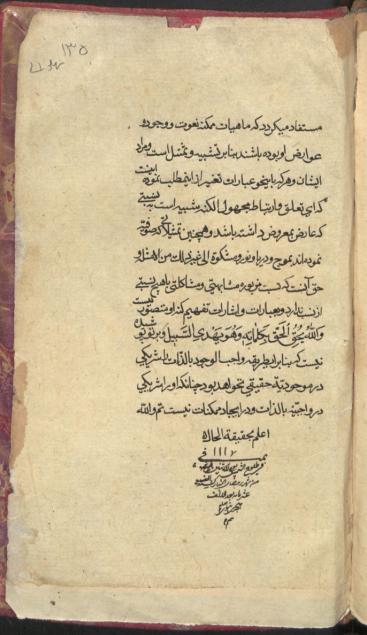 ۱۳۵
مستفاد میکردد که ماهیات ممکنه نعوت و وجود و
عوارض او بوده باشند بنابر تشبیه و تمثیل است و مراد
ایشان و هر که باینحو عبارات تعبیر از اینمطلب نموده اینست
که ای تعلق و ارتباط مجهول الکنه شبیه است به نسبتی
که عارض بمعروض داشته باشد و همچنین تمثیلاتی که صوفیه
نموده‌اند بموج و دریا و نور و مشکوة الی غیر ذلک من الامثال و
حق آنست که نسبت مزبوره مشابهتی و مشاکلتی با هیچ نسبتی
از نسب ندارد و بعبارات و اشارات تفهیم کنه او متصور نیست
والله یحق الحق بکلماته وهو یهدی السبیل و بر تو پوشیده
نیست که بنابر این طریقه واجب الوجود بالذات را شریکی
در موجودیة حقیقی نخواهد بود چنانکه او را شریکی
در واجبیة بالذات و در ایجاد ممکنات نیست تم والله
اعلم بحقیقة الحال
۱۱۱۷
تمت فی